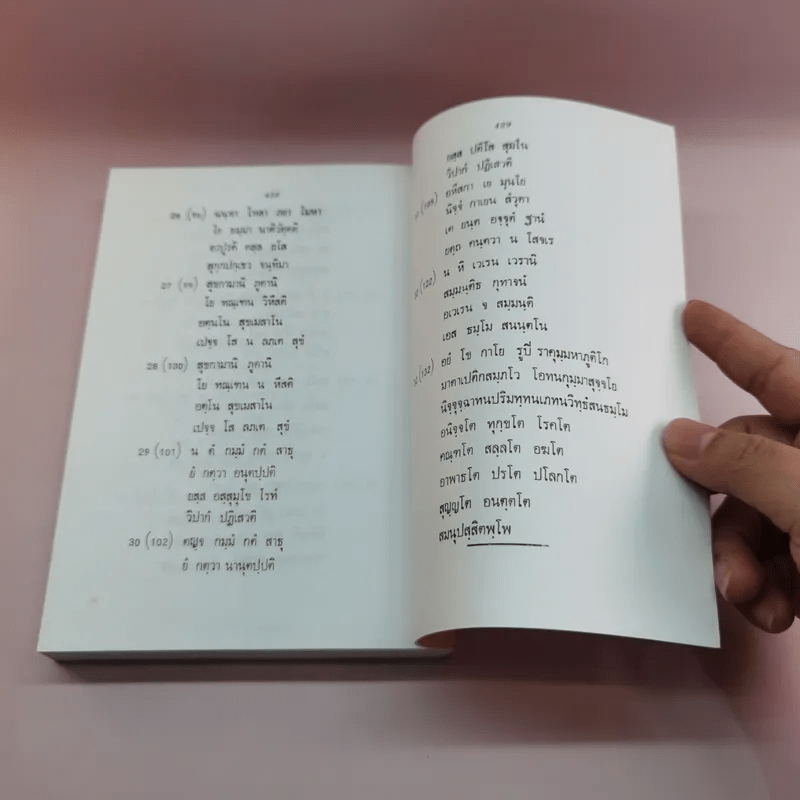 26 (๙๘) ฉนฺทา โทสา ภยา โมหา
โย ธมฺมํ นาติวตฺตติ
อาปูรติ ตสฺส ยโส
สุกฺกปกฺเขว จนฺทิมา
27 (๙๙) สุขกามานิ ภูตานิ
โย ทณฺเฑน วิหึสติ
อตฺตโน สุขเมสาโน
เปจฺจ โส น ลภเต สุขํ
28 (100) สุขกามานิ ภูตานิ
โย ทณฺเฑน น หึสติ
อตฺตโน สุขเมสาโน
เปจฺจ โส ลภเต สุขํ
29 (101) น ตํ กมฺมํ กตํ สาธุ
ยํ กตฺวา อนุตปฺปติ
ยสฺส อสฺสุมุโข โรทํ
วิปากํ ปฏิเสวติ
30 (102) ตญฺจ กมฺมํ กตํ สาธุ
ยํ กตฺวา นานุตปฺปติ
ยสฺส ปตีโต สุมโน
วิปากํ ปฏิเสวติ
อหึสกา เย มุนโย
นิจฺจํ กาเยน สํวุตา
เต ยนฺติ อจฺจุตํ ฐานํ
ยตฺถ คนฺตฺวา น โสจเร
(122) น หิ เวเรน เวรานิ
สมฺมนฺตีธ กุทาจนํ
อเวเรน จ สมฺมนฺติ
เอส ธมฺโม สนนฺตโน
(132) อยํ โข กาโย รูปี จาตุมฺมหาภูติโก
มาตาเปติกสมฺภโว โอทนกุมฺมาสุจฺจโย
นิจฺจุจฺฉาทนปริมทฺทนเภทนวิทฺธํสนธมฺโม
อนิจฺจโต ทุกฺขโต โรคโต
คณฺฑโต สลฺลโต อฆโต
อาพาธโต ปรโต ปโลกโต
สุญฺญโต อนตฺตโต
สมนุปสฺสิตพฺโพ